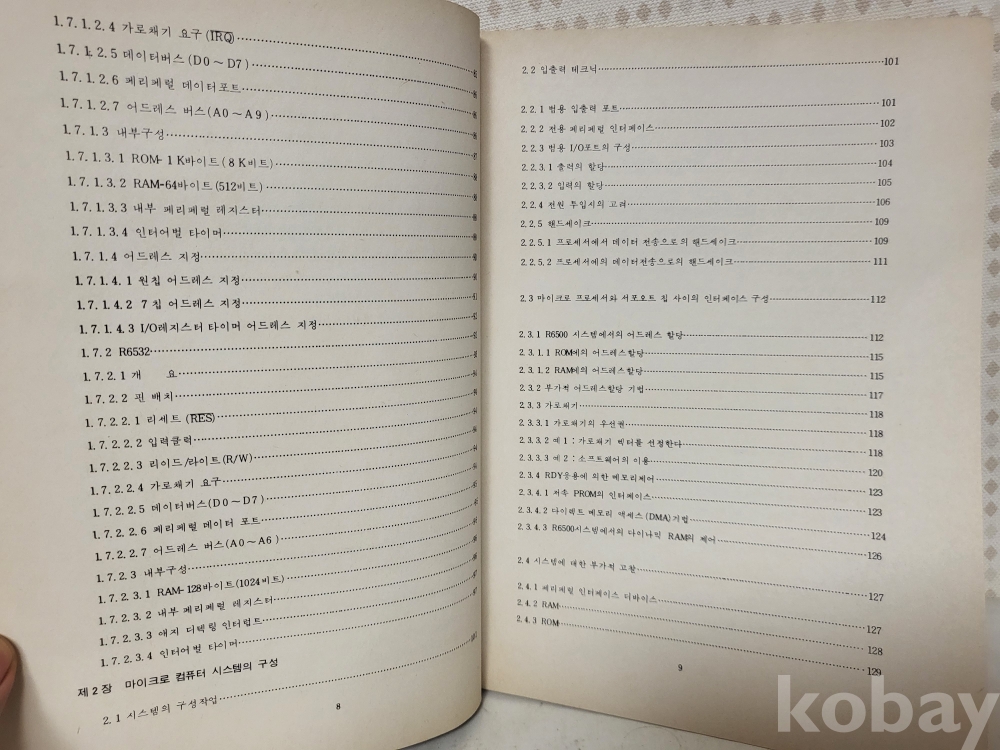 1.7.1.2.4 가로채기 요구(IRQ)
1.7.1.2.5 데이터버스(D0~D7)
1.7.1.2.6 페리페럴 데이터포트
1.7.1.2.7 어드레스 버스(A0~A9)
1.7.1.3 내부구성
1.7.1.3.1 ROM-1K바이트(8K비트)
1.7.1.3.2 RAM-64바이트(512비트)
1.7.1.3.3 내부 페리페럴 레지스터
1.7.1.3.4 인터어벌 타이머
1.7.1.4 어드레스 지정
1.7.1.4.1 원칩 어드레스 지정
1.7.1.4.2 7칩 어드레스 지정
1.7.1.4.3 I/O레지스터 타이머 어드레스 지정
1.7.2 R6532
1.7.2.1 개 요
1.7.2.2 핀 배치
1.7.2.2.1 리세트(RES)
1.7.2.2.2 입력클럭
1.7.2.2.3 리이드/라이트(R/W)
1.7.2.2.4 가로채기 요구
1.7.2.2.5 데이터버스(D0~D7)
1.7.2.2.6 페리페럴 데이터 포트
1.7.2.2.7 어드레스 버스(A0~A6)
1.7.2.3 내부구성
1.7.2.3.1 RAM-128바이트(1024비트)
1.7.2.3.2 내부 페리페럴 레지스터
1.7.2.3.3 애지 디텍팅 인터럽트
1.7.2.3.4 인터어벌 타이머
제2장 마이크로 컴퓨터 시스템의 구성
2.1 시스템의 구성작업
8
2.2 입출력 테크닉 101
2.2.1 범용 입출력 포트 101
2.2.2 전용 페리페럴 인터페이스 102
2.2.3 범용 I/O포트의 구성 103
2.2.3.1 출력의 할당 104
2.2.3.2 입력의 할당 105
2.2.4 전원 투입시의 고려 106
2.2.5 핸드셰이크 109
2.2.5.1 프로세서에서 데이터 전송으로의 핸드셰이크 109
2.2.5.2 프로세서에의 데이터전송으로의 핸드셰이크 111
2.3 마이크로 프로세서와 서포오트 칩 사이의 인터페이스 구성 112
2.3.1 R6500 시스템에서의 어드레스 할당 112
2.3.1.1 ROM에의 어드레스할당 115
2.3.1.2 RAM에의 어드레스할당 115
2.3.2 부가적 어드레스할당 기법 117
2.3.3 가로채기 118
2.3.3.1 가로채기의 우선권 118
2.3.3.2 예1 : 가로채기 벡터를 선정한다 118
2.3.3.3 예2 : 소프트웨어의 이용 120
2.3.4 RDY응용에 의한 메모리제어 123
2.3.4.1 저속 PROM의 인터페이스 123
2.3.4.2 다이렉트 메모리 액세스(DMA)기법 124
2.3.4.3 R6500시스템에서의 다이나믹 RAM의 제어 126
2.4 시스템에 대한 부가적 고찰 127
2.4.1 페리페럴 인터페이스 디바이스 127
2.4.2 RAM 128
2.4.3 ROM 129
9
kobay